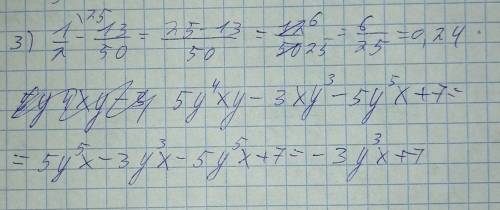 3) 1/2 \25 - 13/50 = (25-13)/50 = 12/50 6/25 = 6/25 = 0,24.
5y⁴xy - 3xy³ - 5y⁵x + 7 =
= 5y⁵x - 3y³x - 5y⁵x + 7 = - 3y³x + 7